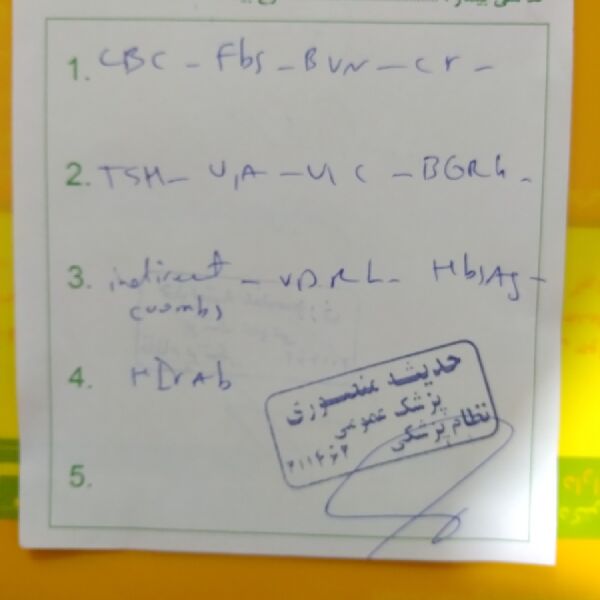 1. CBC - Fbs - BUN - Cr -
2. TSH - U/A - U/C - BGRh -
3. indirect - VDRL - HbsAg -
coombs
4. HIVAb
پزشک عمومی
نظام پزشکی
5.